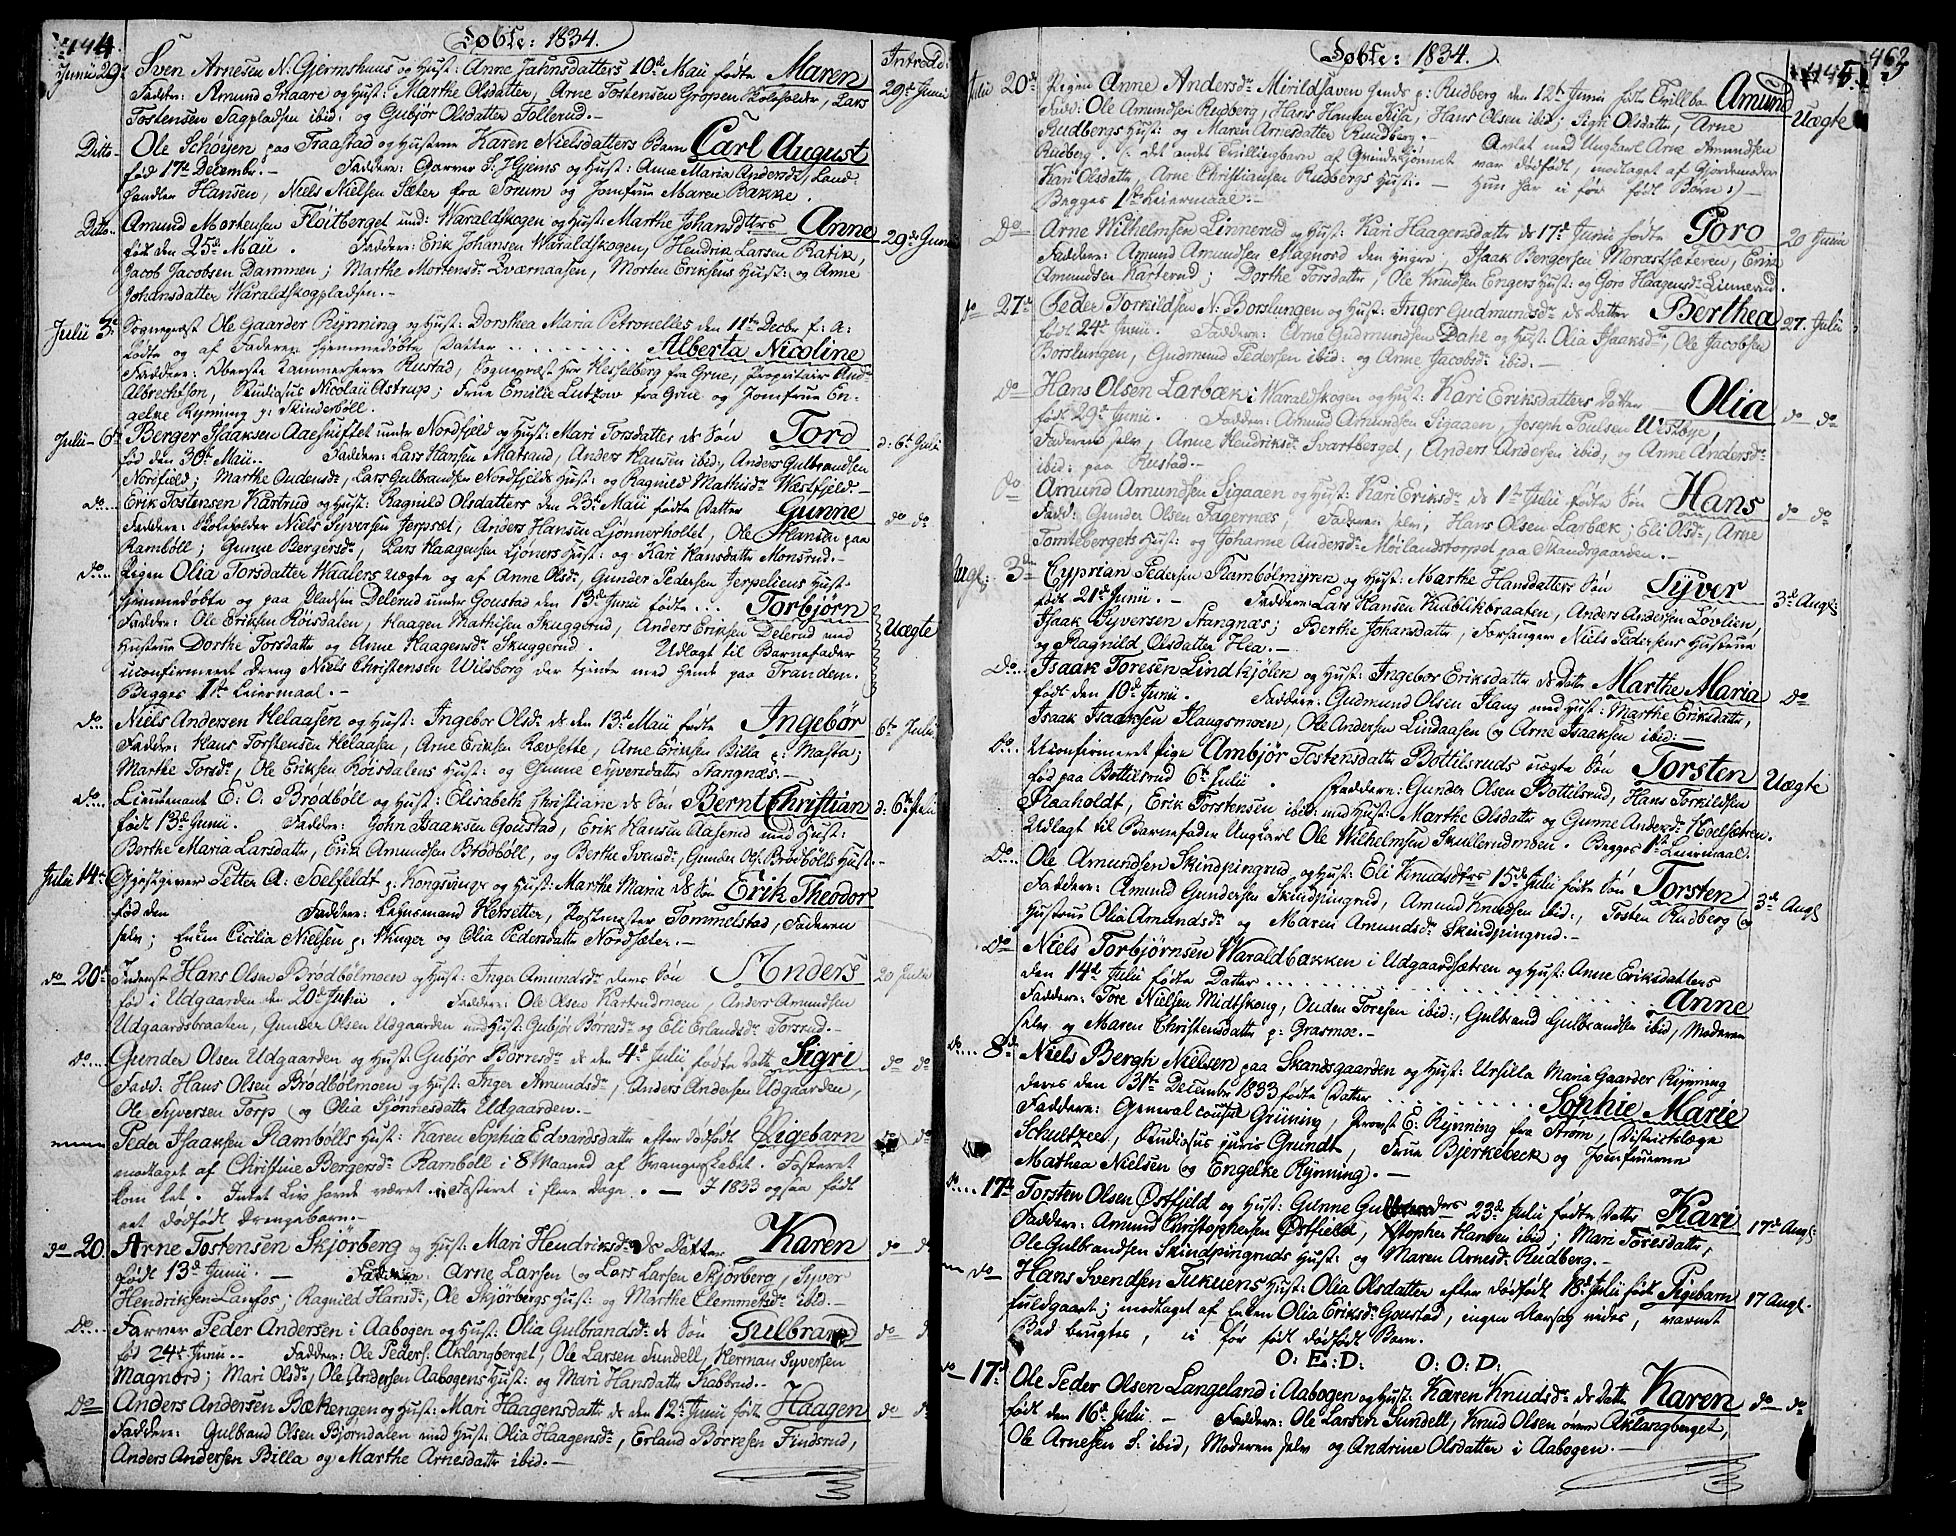 444.
Døbte: 1834.
Introd:
Junii 29d Sven Arnesen N: Gjermshuus og Hust: Anne Jahnsdatters 10d Maii fødte Maren 29d Junii
Faddere: Amund Snaare og Hust: Marthe Olsdatter, Arne Tostensen Gropen Skoleholder, Lars
Tostensen Sagpladsen ibid: og Gubjør Olsdatter Tollerud.-
Ditto- Ole Schøyen paa Fraastad og Husterne Karen Nielsdatters Barn Carl August
født 17d Decembr.- Faddere: Garver S. J. Gjems og Hust: Anne Maria Andersdr, Land-
handler Hansen, Niels Nielsen Sæter fra Sorum og Jomfrue Maren Bakke.
Ditto- Amund Mortensen Fløitberget und: Waraldskogen og Hust: Marthe Johansdttrs Anne 29d Junii
født den 25d Maii. Faddere: Erik Johansen Waraldskogen, Hendrik Larsen Ratik,
Jacob Jacobsen Dammen; Marthe Mortensdr Qværnaasen, Morten Eriksens Hust: og Anne
Johansdatter Waraldskogpladsen.-
Julii 3d Sognepræst Ole Gaarder Rynning og Hust: Dorothea Maria Petronelles den 11te Decbr f: a:
fødte og af Faderen hjemmedøbte Datter . . . . . . . . . Alberta Nicoline
Faddere: Oberste Kammerherre Rustad, Sognepræst Hr Hesselberg fra Grue, Proprietair And-
Albrechtson, Studiosus Nicolai Astrup; Frue Emilie Lutzow fra Grue og Jomfrue En-
gelke Rynning p: Skinderbøll.
Julii- 6d Berger Isaaksen Aaeskiftet under Nordfjeld og Hust: Mari Torsdatters ds Søn Tord d: 6d Julii
født den 30d Maii.. Faddere: Lars Hansen Matrand, Anders Hansen ibid:, Anders Gulbrandsen
Nordfield; Marthe Oudensdr, Lars Gulbrandsen Nordfjelds Hust: og Ragnild Mathisdr Wæstfjeld.-
do... Erik Tostensen Kartrud og Hust: Ragnild Olsdatters den 23d Maii fødte Datter Gunne do do
Faddere: Skoleholder Niels Syversen Jerpset, Anders Hansen Ljønnerholtet, Ole Hansen paa
Rambøll; Gunne Bergersdr, Lars Haagensen Ljøners Hust: og Kari Hansdatter Monsrud.-
do... Pigen Olia Torsdatter Waalers uægte og af Anne Olsdr, Gunder Pedersen Jerpeliens Hust:
hjemmedøbte og paa Pladsen Delerud under Goustad den 13d Junii fødte ... Torbjørn
Faddere: Ole Eriksen Røisdalen, Haagen Mathisen Skuggerud, Anders Eriksen Delerud med Uægte
Husterne Dorthe Torsdatter og Anne Haagensdr Skuggerud. Udlagt til Barnefader
uconfirmeret Dreng Niels Christensen Wilsborg der tjente med hende paa Trandem.
Begges 1ste Leiermaal.-
do.. Niels Andersen Helaasen og Hust: Ingebor Olsdr ds den 13d Maii fødte Ingebør 6d Julii
Faddere: Hans Torstensen Helaasen, Arne Eriksen Rævsette, Arne Eriksen Billa p: Masta;
Marthe Torsdr, Ole Eriksen Røisdalens Hust: og Gunne Syversdatter Stangnæs.-
do... Lieutenant E: O: Brødbøll og Hust: Elisabeth Christiane ds Søn Bernt Christian d: 6d Julii
født 13d Junii. Faddere: John Isaaksen Goustad, Erik Hansen Aaserud med Hust:
Berthe Maria Larsdatter, Erik Amundsen Brødbøll, og Berthe Svensdr, Gunder Ols: Brødbølls Hust.-
Julii 14d Gjæstgiver Petter A: Soelfeldt p: Kongsvinger og Hust: Marthe Maria ds Søn Erik Theodor
født den Faddere: Lensmand Hersetter, Postmester Tommelstad, Faderen
selv; Enken Cicilia Nielsen p: Vinger og Olia Pedersdatter Nordsæter.-
do 20d Inderst Hans Olsen Brødbølmoen og Hust: Inger Amundsdr deres Søn Anders 20 Julii
født i Udgaarden den 20d Julii. Faddere: Ole Olsen Kartrudmoen, Anders Amundsen
Udgaardsbraaten, Gunder Olsen Udgaarden med Hust: Gubjør Børresdr og Eli Erlandsdr Torsrud.-
do... Gunder Olsen Udgaarden og Hust: Gubjør Børresdr ds den 4d Julii fødte Datter Sigri do do
Fadd: Hans Olsen Brødbølmoen og Hust: Inger Amundsdr, Anders Andersen Udgaarden,
Ole Syversen Torp og Olia Sjønnesdatter Udgaarden.-
Peder Isaaksen Rambølls Hust: Karen Sophia Edvardsdatter efter dødfødt Pigebarn do do
modtaget af Christine Bergersdr Rambøll i 8 Maaned af Svangerskabet. Fosteret
kom let. Intet Liv havde været i Fosteret i flere Dage. - I 1833 ogsaa født
eet dødfødt Drengebarn.-
do 20. Arne Tostensen Skjørberg og Hust: Mari Hendriksdr ds Datter Karen do d
født 13d Junii.- Faddere: Arne Larsen og Lars Larsen Skjørberg, Syver
Hendriksen Lanfos; Ragnild Hansdr, Ole Skjorbergs Hust: og Marthe Clemmetsdr ibid.-
do... Farver Peder Andersen i Aabogen og Hust: Olia Gulbrandsdr ds Søn Gulbrand do d
født 24d Junii.. Faddere: Ole Peders: Aklangberget, Ole Larsen Sundell, Herman Syversen
Magnord; Mari Olsdr, Ole Andersen Aabogens Hust: og Mari Hansdatter Skabbrud.-
do Anders Andersen Bækengen og Hust: Mari Haagensdatter ds den 12d Junii født Haagen do d
Faddere: Gulbrand Olsen Bjorndalen med Hust: Olia Haagensdr, Erland Børresen Findsrud,
Anders Andersen Billa og Marthe Arnesdatter ibid.-
Døbte: 1834.
445.
463
Julii 20d Pigen Anne Andersdr Mirildhaven tjende p: Rudberg den 12d Junii fødte Tvillbn Amund Uægte
Fadd: Ole Amundsen Rudberg, Hans Hansen Risa, Hans Olsen ibid; Sigri Olsdatter, Arne
Rudbergs Hust: og Maren Arnesdatter Rudberg.- Avlet med Ungkarl Arne Amundsen
Rudberg. (: Det andet Tvillingbarn af Qvindekjønnet var dødfødt, modtaget af Gjordemoder
Kari Olsdatter, Arne Christiansen Rudbergs Hust:.- Hun har ei før født Børn :)-
Begges 1ste Leiermaal.-
do Arne Wilhelmsen Linnerud og Hust: Kari Haagensdatter ds 17d Junii fødte Goro 20 Junii
Faddere: Amund Amundsen Magnord den yngre, Isaak Bergersen Morastsæteren, Erik
Amundsen Karterud; Dorthe Torsdatter, Ole Knudsen Engers Hust: og Goro Haagensdr Linnerud.
do 27d Peder Torkildsen N: Borslungen og Hust: Inger Gudmundsdr ds Datter Berthea 27. Julii
født 24d Junii. Faddere: Arne Gudmundsen Dahl og Hust: Olia Isaksdr, Ole Jacobsen
Borslungen, Gudmund Pedersen ibid: og Anne Jacobsdr ibid:-
do Hans Olsen Larbæk i Waraldskogen og Hust: Kari Eriksdatters Datter Olia do do
født 29d Junii. Faddere: Amund Amundsen Sigaaen, Joseph Poulsen Westbye,
Faderen selv, Arne Hendriksdr Svartberget, Anders Andersen ibid, og Anne Andersdr
ibid: paa Rustad.-
do Amund Amundsen Sigaaen og Hust: Kari Eriksdr ds 1ste Julii fødte Søn Hans do do
Fadd: Gunder Olsen Fagernæs, Faderen selv, Hans Olsen Larbæk; Eli Olsdr, Arne
Tomtebergets Hust: og Johanne Andersdr Mølandstorpet paa Skandsgaarden.-
Augs: 3d Cyprian Pedersen Rambølmyren og Hust: Marthe Hansdatters Søn Syver 3d Augs:
født 21d Junii.- Faddere: Lars Hansen Kublikbraaten, Anders Andersen Løvlien,
Isaak Syversen Stangnæs; Berthe Johansdatter, Forsanger Niels Pedersens Husterne
og Ragnild Olsdatter Hea.-
Do... Isaak Toresen Lindkjølen og Hust: Ingebor Eriksdatter ds Dattr Marthe Maria do
født den 10d Junii. Faddere: Gudmund Olsen Haug med Hust: Marthe Eriksdatter,
Isaak Isaaksen Haugsmoen, Ole Andersen Lindaasen og Arne Isaaksen ibid:-
Do.. Uconfirmeret Pige Ambjør Tostensdatter Bottilsruds uægte Søn Torsten Uægte
født paa Bottilsrud 6d Julii. Faddere: Gunder Olsen Bottilsrud, Hans Torkildsen
Raaholdt, Erik Torstensen ibid: med Hust: Marthe Olsdatter og Gunne Andersdr Hoelsætren.
Udlagt til Barnefader Ungkarl Ole Wilhelmsen Skullerudmoen. Begges 1ste Leiermaal.
Do... Ole Amundsen Skindpingrud og Hust: Eli Knudsdtrs 15d Julii fødte Søn Torsten 3d Augs
Faddere: Amund Gundersen Skindpingrud, Amund Knudsen ibid:, Tosten Rudberg og
Hustrue Olia Amundsdr og Maren Amundsdr Skindpingrud.-
do Niels Torbjørnsen Waraldbakken i Udgaardsætren og Hust: Anne Eriksdatters
den 14d Julii fødte Datter . . . . . . . . . . . . . . . . Anne
Faddere: Tore Nielsen Midtskoug, Ouden Toresen ibid:, Gulbrand Gulbrandsen ibid, Moderen
selv og Maren Christensdatter p: Grasmoe.-
do.... 8d Niels Bergh Nielsen paa Skandsgaarden og Hust: Ursilla Maria Gaarder Rynning
deres den 31te December 1833 fødte Datter . . . . . . . . . Sophie Marie
Faddere: General consul Grüning, Provst E: Rynning fra Strøm, Districtslæge
Schultzee, Studiosus juris Grundt, Frue Bjerkebeck og Jomfruerne
Mathea Nielsen og Engelke Rynning).-
do.... 17d Torsten Olsen Østfjeld og Hust: Gunne 23d Julii fødte Datter Kari 17d Augs:
Faddere: Amund Christophersen Østfield, Xstopher Hansen ibid; Mari Toresdatter,
Ole Gulbrandsen Skindpingruds Hust: og Maren Arnesdr Rudberg.-
do Hans Svendsen Tukuens Hust: Olia Olsdatter efter dødfødt 18d Julii født Pigebarn 17 Augs.
fuldgaaet; modtaget af Enken Olia Eriksdr Goustad, ingen Aarsag vides, varmt
Bad brugtes, ei før født dødfødt Barn.
O: E: D: O: O: D:
do- 17d Ole Peder Olsen Langeland i Aabogen og Hust: Karen Knudsdr ds Datter Karen do- do
født den 16d Julii.- Faddere: Ole Larsen Sundell, Knud Olsen øvre Aklangberget,
Ole Arnesen S: ibid, Moderen selv og Andrine Olsdatter i Aabogen.-